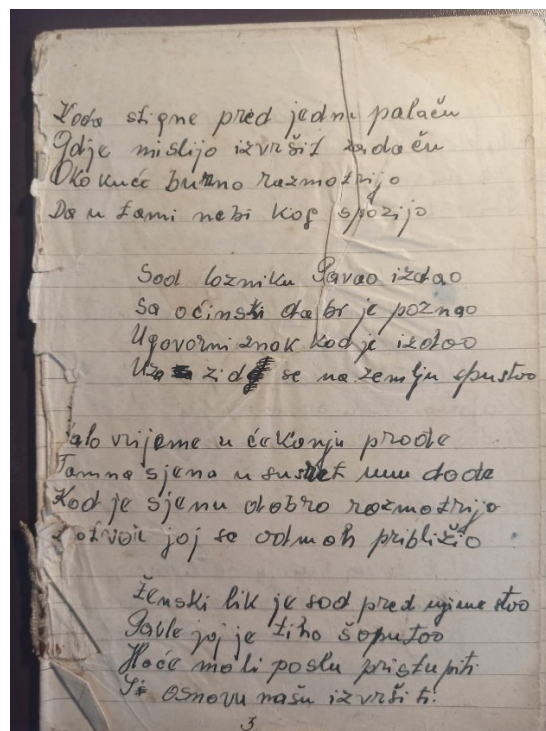 Kada stigne pred jednu palaču
Gdje mislijo izvršit zadaču
Oko kuće burno razmotrijo
Da u tami nebi kog spozijo
Sad lozniku Pavao izdao
Sa očinski da bi je poznao
Ugovorni znak kad je izdao
Uza zid se na zemlju spustvo
Malo vrijeme u čekanju prođe
Tamna sjena u susret mu dođe
Kad je sjenu dobro razmotrijo
joj se odmah približio
Ženski lik je sad pred njime stvo
Pavle joj je tiho šaputao
Hoće mo li poslu pristupiti
I osnovu našu izvršiti.
3.